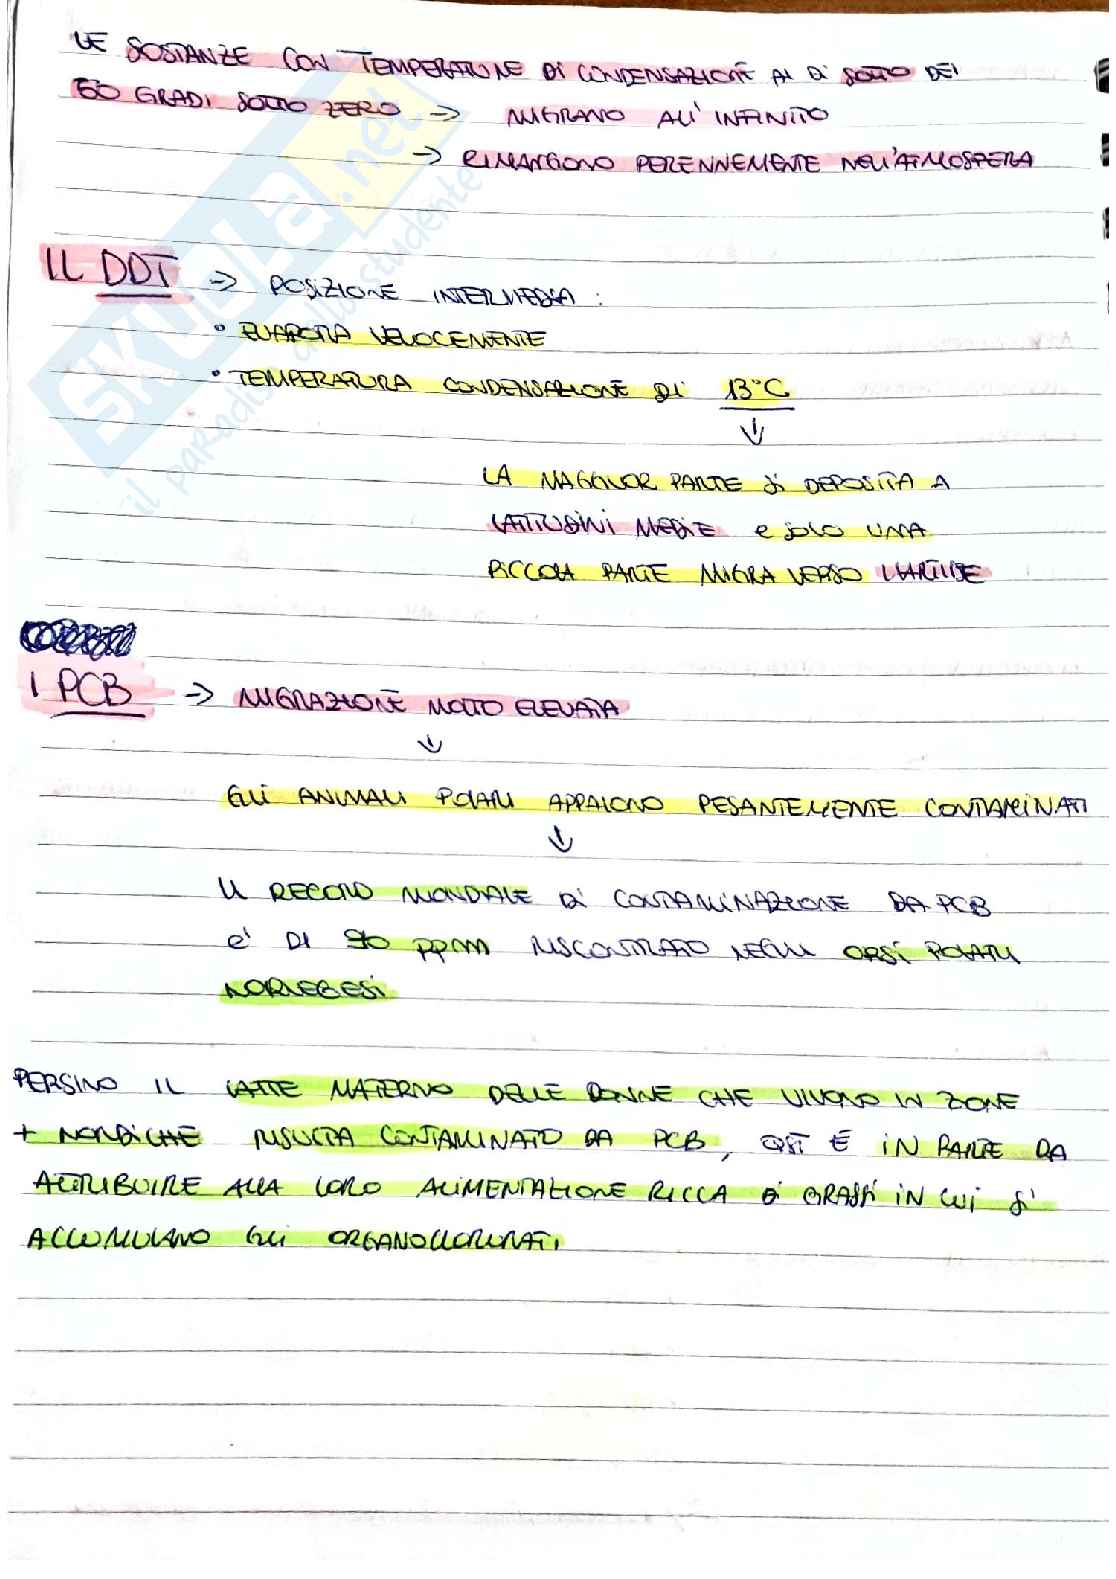 LE SOSTANZE CON TEMPERATURE DI CONDENSAZIONE AL DI SOTTO DEI
50 GRADI SOTTO ZERO → MIGRANO ALL'INFINITO
→ RIMANGONO PERENNEMENTE NELL'ATMOSFERA
IL DDT → POSIZIONE INTERMEDIA :
• EVAPORA VELOCEMENTE
• TEMPERATURA CONDENSAZIONE DI 13°C
↓
LA MAGGIOR PARTE SI DEPOSITA A
LATITUDINI MEDIE e SOLO UNA
PICCOLA PARTE MIGRA VERSO L'ARTIDE
I PCB → MIGRAZIONE MOLTO ELEVATA
↓
GLI ANIMALI POLARI APPAIONO PESANTEMENTE CONTAMINATI
↓
IL RECORD MONDIALE DI CONTAMINAZIONE DA PCB
e' DI 90 ppm RISCONTRATO NEGLI ORSI POLARI
NORVEGESI
PERSINO IL LATTE MATERNO DELLE DONNE CHE VIVONO IN ZONE
+ NORDICHE RISULTA CONTAMINATO DA PCB, È IN PARTE DA
ATTRIBUIRE ALLA LORO ALIMENTAZIONE RICCA DI GRASSI IN CUI SI
ACCUMULANO GLI ORGANOCLORURATI.
SKUOLA.net
il paradiso dello studente